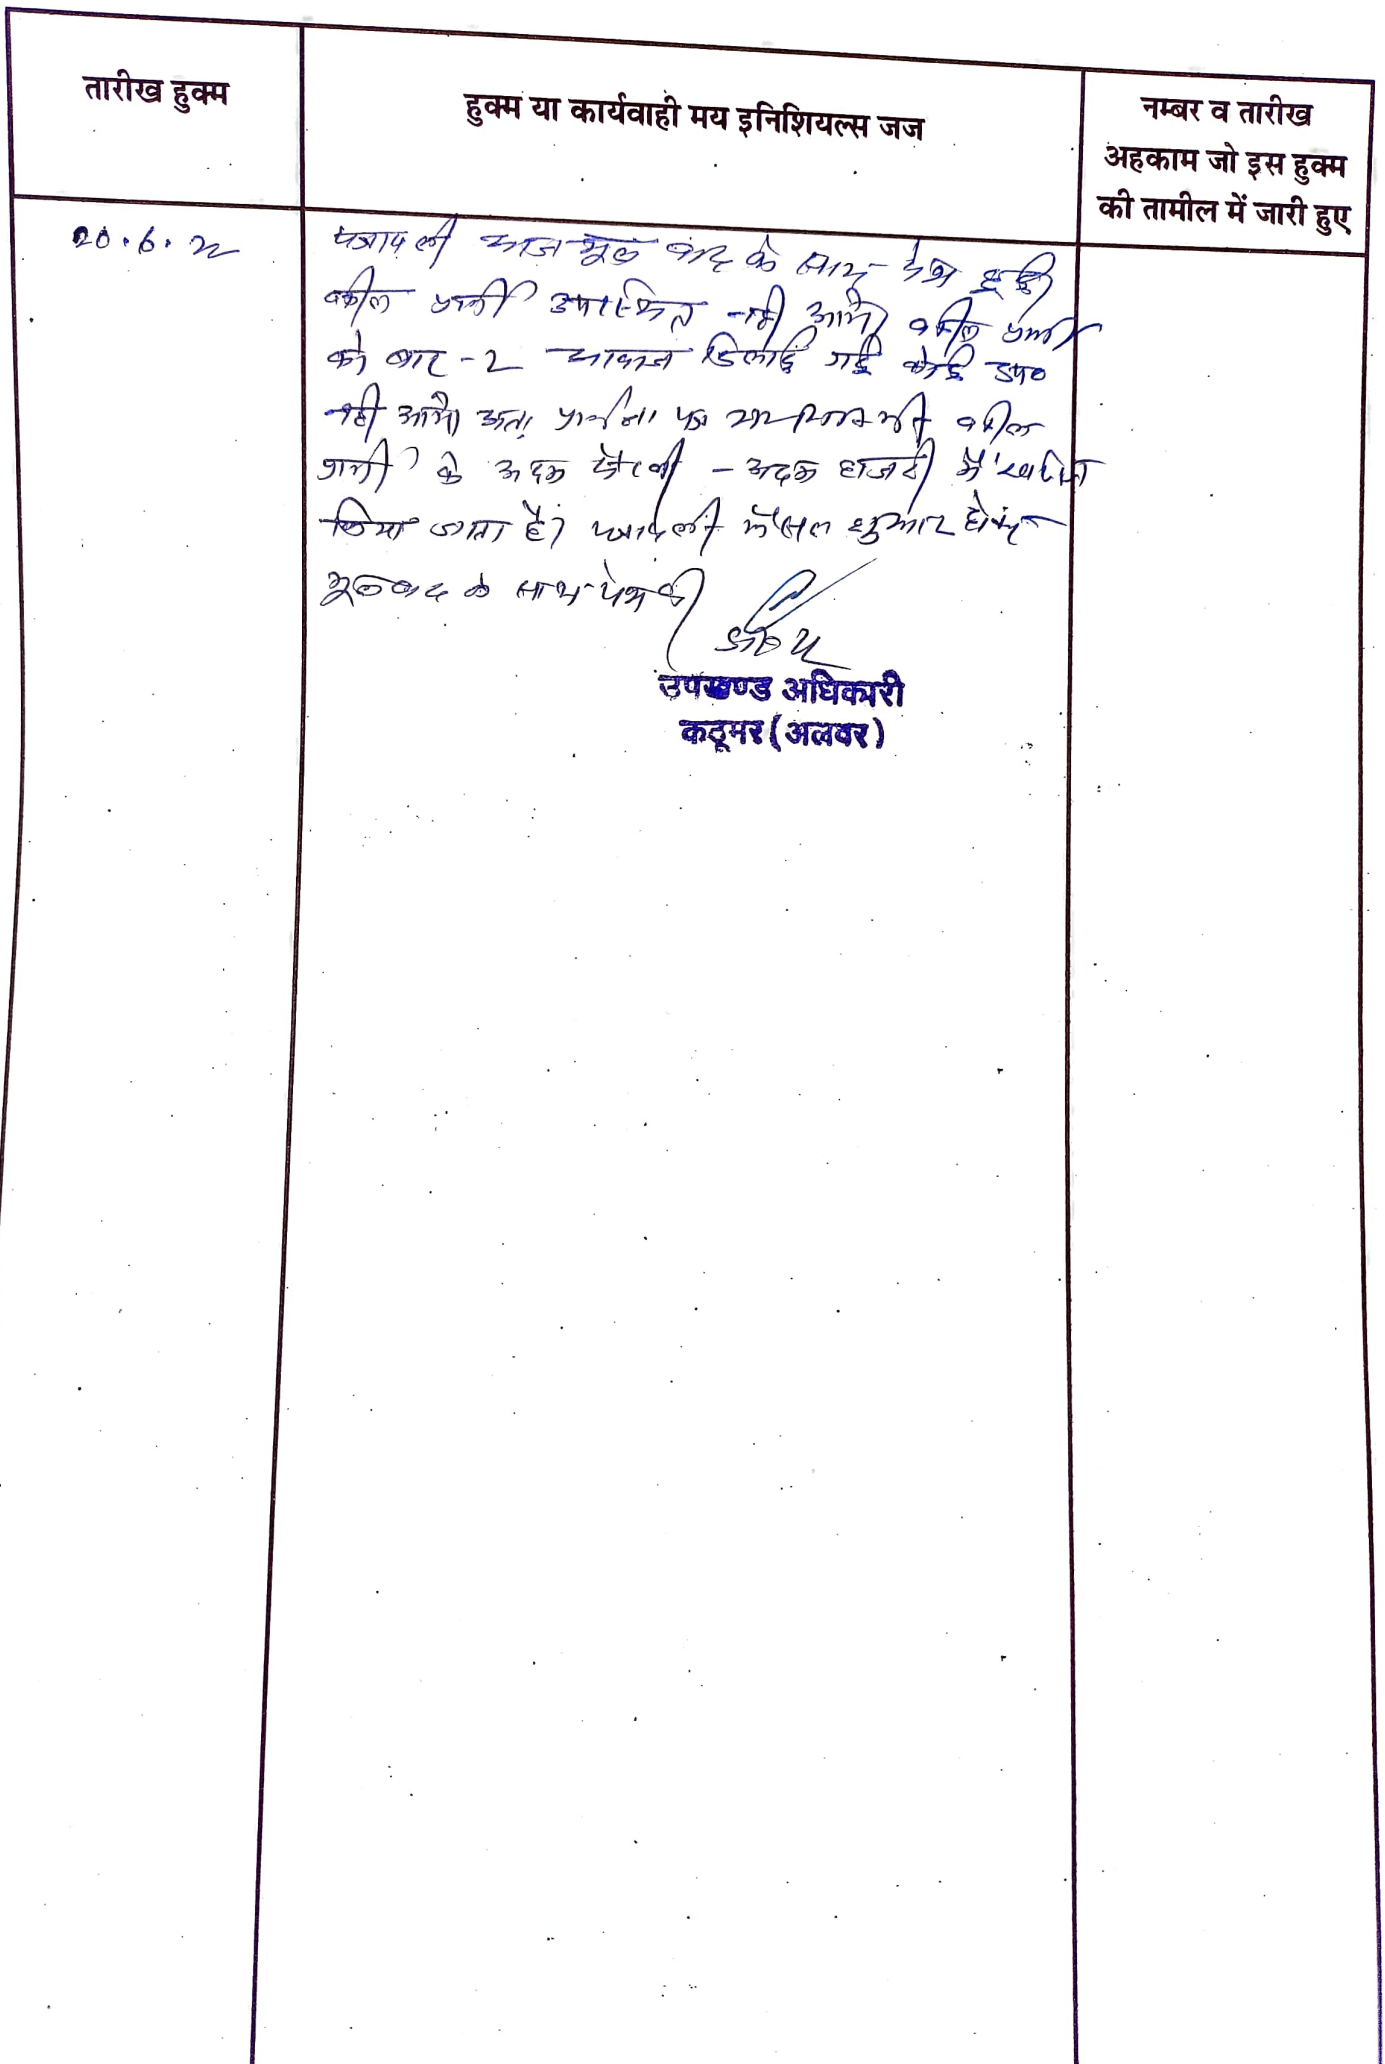 तारीख हुक्म
हुक्म या कार्यवाही मय इनिशियल्स जज
नम्बर व तारीख
अहकाम जो इस हुक्म
की तामील में जारी हुए
20.6.22
पत्रावली आज मूल वाद के साथ पेश हुई।
वकील प्रार्थी उपस्थित नही आये। वकील प्रार्थी
को बार-2 आवाज दिलाई गई कोई उप०
नही आये। अतः प्रार्थना पत्र वकील
प्रार्थी के अदम पैरवी - अदम हाजरी में खारिज
किया जाता है। पत्रावली फैसल शुमार होकर
मूल वाद के साथ पेश हो।
उपखण्ड अधिकारी
कठूमर (अलवर)